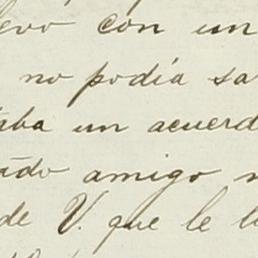 evo con un
no podía sa
aba un acuerd
ado amigo
de V. que le